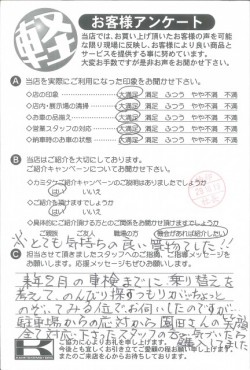 軽
お客様アンケート
当店では、お買い上げ頂いたお客様の声を可能
な限り現場に反映し、お客様により良い商品と
サービスを提供する事に努めています。
大変お手数ですが是非お声をお聞かせ下さい。
A 当店を実際にご利用になった印象をお聞かせ下さい。
◇店の印象 大満足 満足 ふつう やや不満 不満
◇店内・展示場の清掃 大満足 満足 ふつう やや不満 不満
◇お車の品揃え 大満足 満足 ふつう やや不満 不満
◇営業スタッフの対応 大満足 満足 ふつう やや不満 不満
◇納車時のお車の状態 大満足 満足 ふつう やや不満 不満
B 当店はご紹介を大切にしております。
ご紹介キャンペーンについてお聞かせ下さい
◇カミタケご紹介キャンペーンのご説明はありましたでしょうか
はい いいえ
◇ご紹介を頂けますでしょうか
はい いいえ
◇具体的にご紹介頂ける方とのご関係をお聞かせ頂けますでしょうか
ご親族 ご友人 職場の方 機会があれば紹介したい
とても気持ちの良い買物でした!!
C 担当させて頂きましたスタッフへのご指摘、ご指導メッセージを
お願いします。応援メッセージもぜひお願いします。
来年2月の車検までに乗り替えを
考えて、のんびり探すつもりがちょっと
のぞいてみる位でお伺いしたのですが
駐車場からの応対から園田さんの笑顔
全て対応下さったスタッフの
購入しました
K
ご協力に心よりお礼を申し上げます。
今後とも宜しくお引き立てご愛顧の程お願いいたします。
またのご来店を心からお待ちしております。